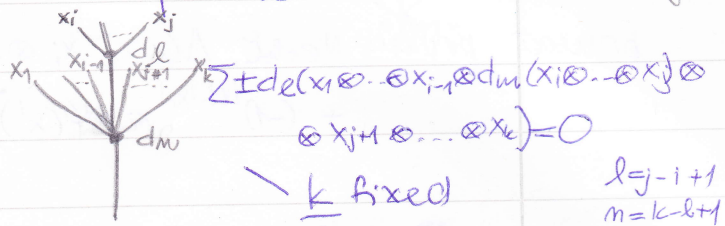 xi xj
dl
x1 xi-1 xj+1 xk
dm
∑±dl(x1⊗..⊗xi-1⊗dm(xi⊗..⊗xj)⊗
⊗xj+1⊗....⊗xk)=0
k fixed
l=j-i+1
m=k-l+1